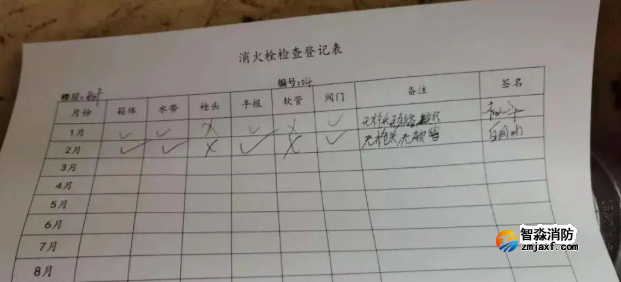 消火栓检查登记表
楼层: 编号:04
月份 箱体 水带 枪头 手报 软管 阀门 备注 签名
1月 ✓ ✓ ✗ ✓ ✗ ✓
2月 ✓ ✓ ✗ ✓ ✗ ✓ 无枪头 无软管
3月
4月
5月
6月
7月
8月
智淼消防
zmjaxf.com